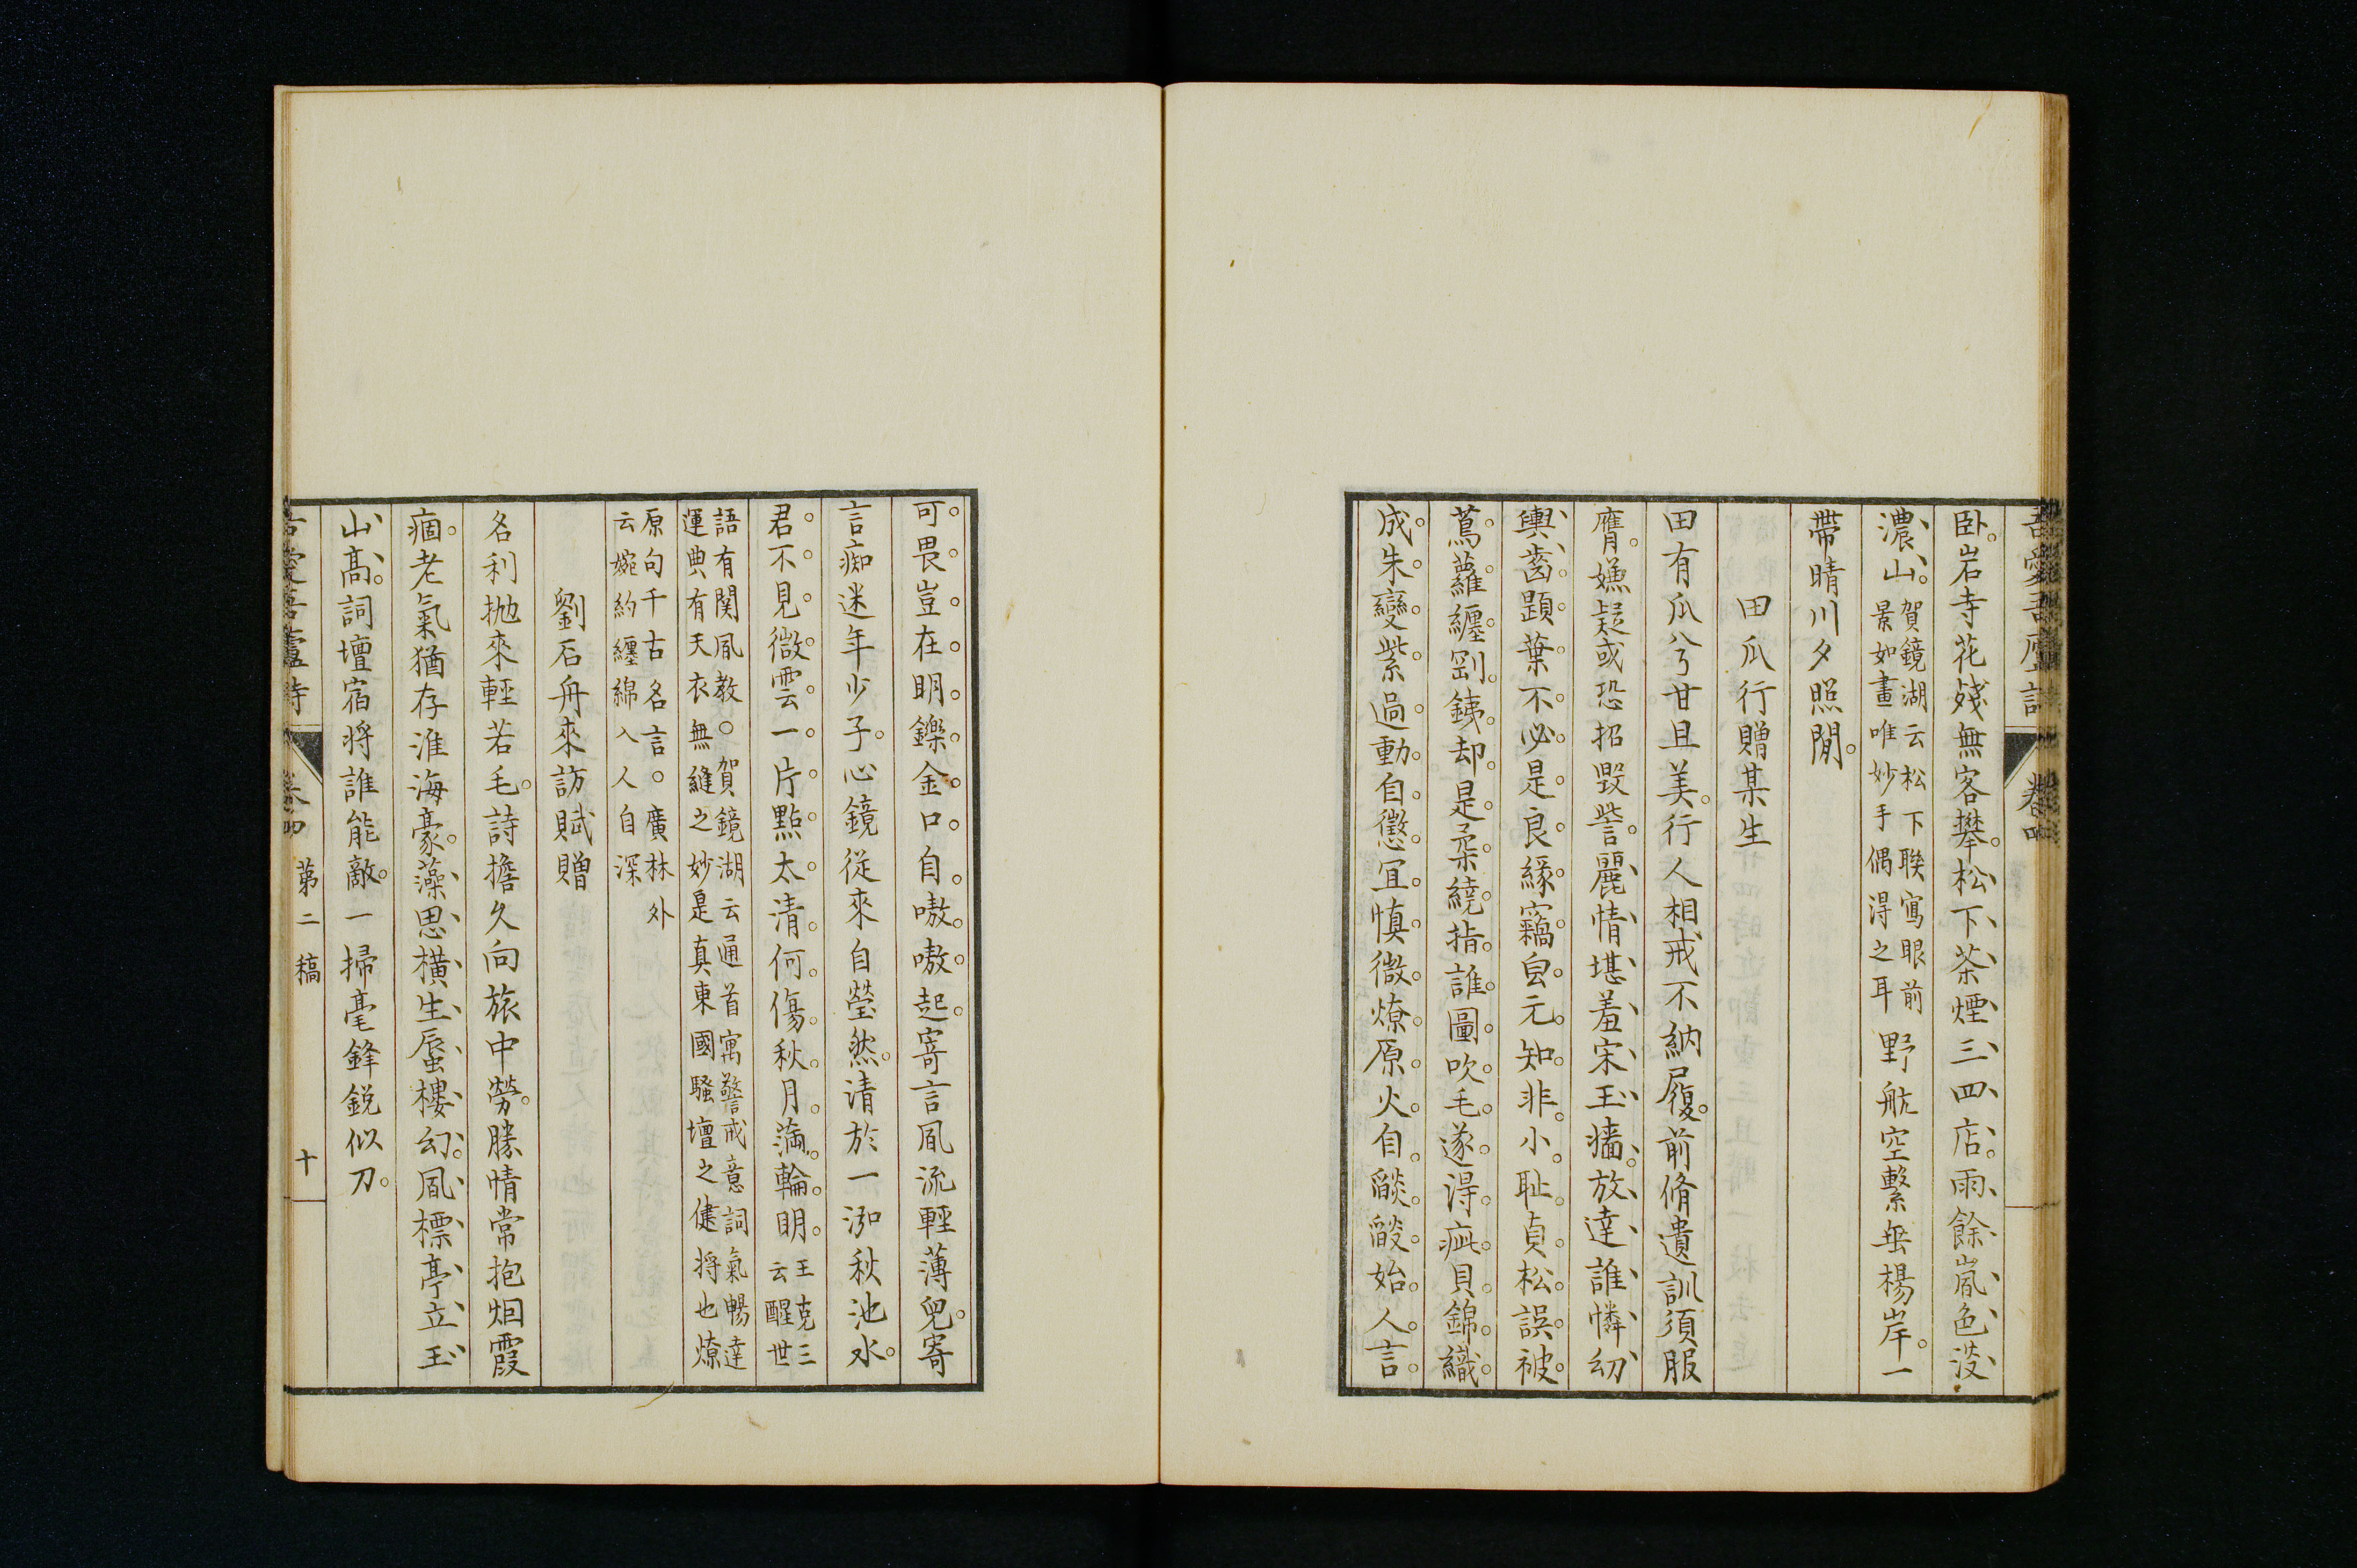 吾愛吾廬詩 卷四
臥岩寺花殘無客攀松下茶煙三四店雨餘嵐色淡
濃山賀鏡湖云松下聯寫眼前景如畫唯妙手偶得之耳野航空繫垂楊岸一
帶晴川夕照閒
田瓜行贈某生
田有瓜兮甘且美行人相戒不納履前脩遺訓須服
膺嫌疑或恐招毀訾麗情堪羞宋玉墻放達誰憐幼
輿齒題葉不必是良緣竊㒵元知非小耻貞松誤被
蔦蘿纏剛銕却是柔繞指誰圖吹毛遂得疵貝錦織
成朱變紫過動自懲宜慎微燎原火自燄燄始人言
可畏豈在明鑠金口自嗷嗷起寄言風流輕薄兒寄
言痴迷年少子心鏡從來自瑩然清於一泓秋池水
君不見微雲一片點太清何傷秋月滿輪明王克三云醒世
語有関風教○賀鏡湖云通首寓警戒意詞氣暢達運典有天衣無縫之妙是真東國騷壇之健將也燎
原句千古名言○廣林外云婉約纏綿入人自深
劉石舟來訪賦贈
名利拋來輕若毛詩擔久向旅中勞勝情常抱烟霞
痼老氣猶存淮海豪藻思橫生蜃樓幻風標亭立玉
山高詞壇宿將誰能敵一掃毫鋒銳似刀
吾愛吾廬詩 卷四 第二稿 十